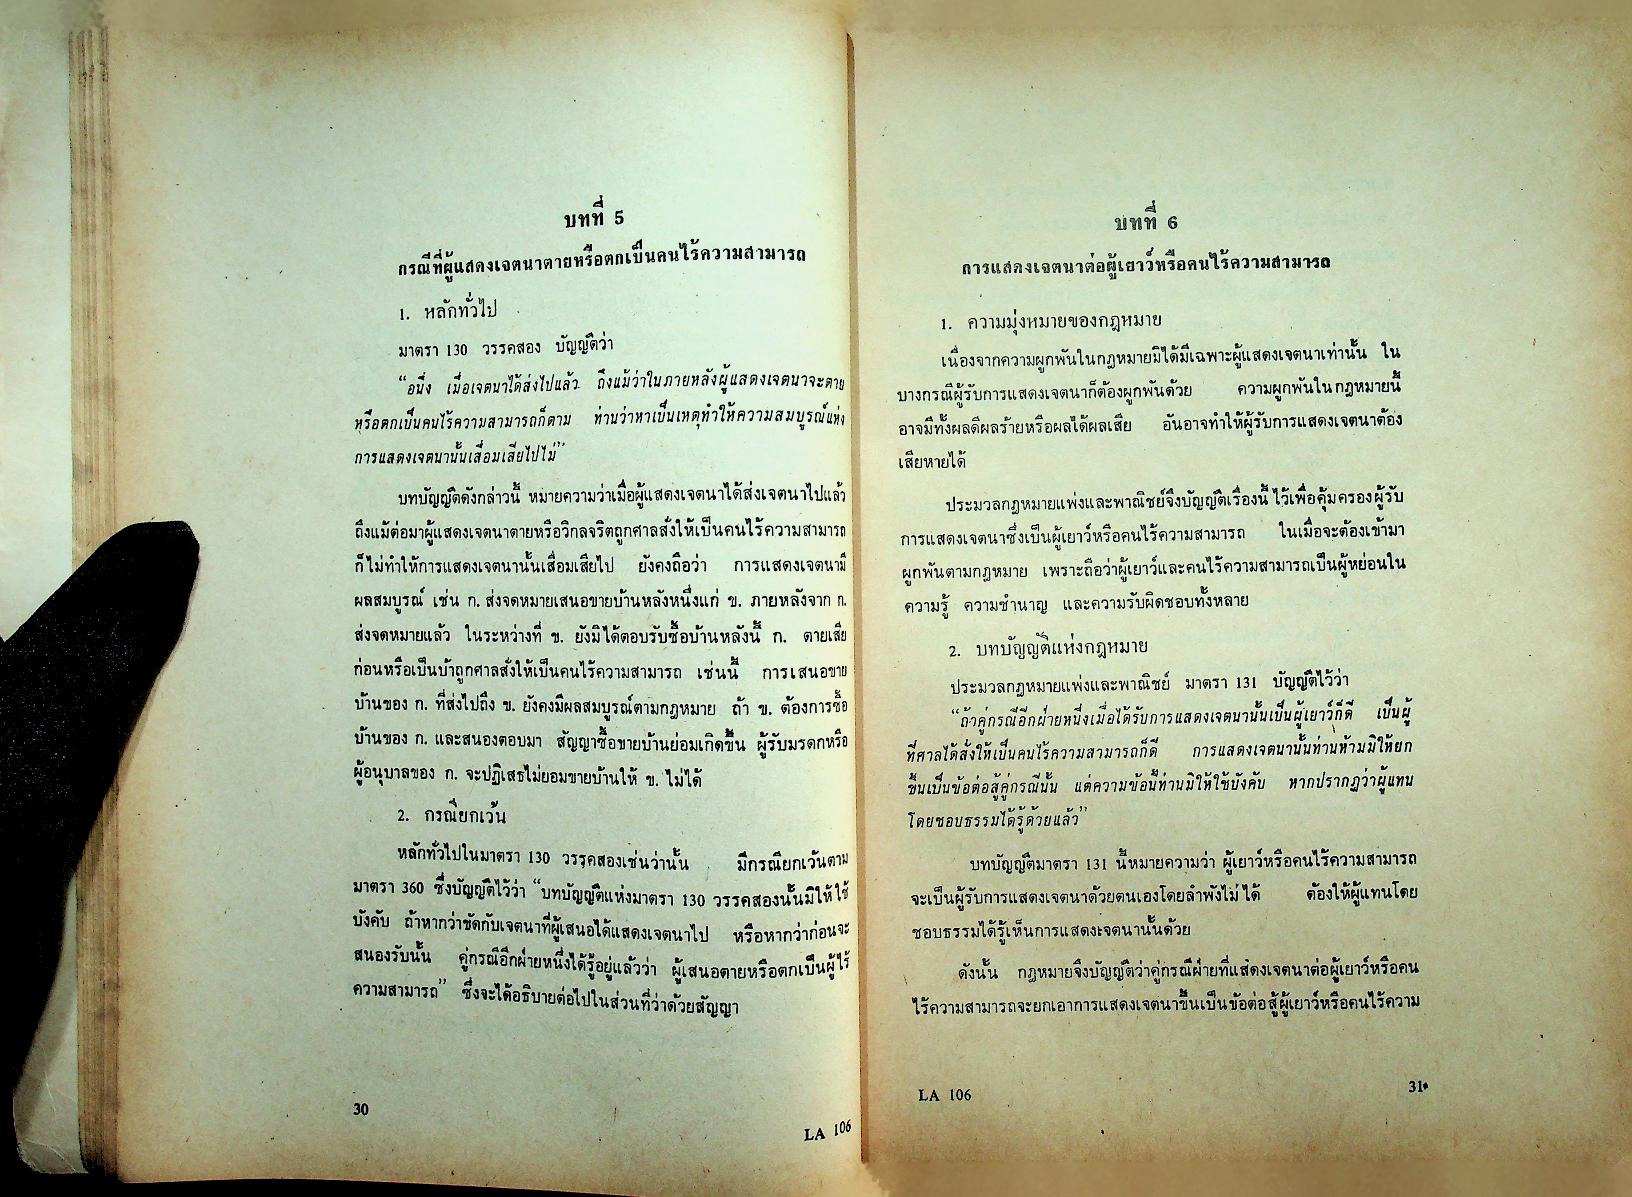 บทที่ 5
กรณีที่ผู้แสดงเจตนาตายหรือตกเป็นคนไร้ความสามารถ
1. หลักทั่วไป
มาตรา 130 วรรคสอง บัญญัติว่า
“อนึ่ง เมื่อเจตนาได้ส่งไปแล้ว ถึงแม้ว่าในภายหลังผู้แสดงเจตนาจะตาย
หรือตกเป็นคนไร้ความสามารถก็ตาม ท่านว่าหาเป็นเหตุทำให้ความสมบูรณ์แห่ง
การแสดงเจตนานั้นเสื่อมเสียไปไม่”
บทบัญญัติดังกล่าวนี้ หมายความว่าเมื่อผู้แสดงเจตนาได้ส่งเจตนาไปแล้ว
ถึงแม้ต่อมาผู้แสดงเจตนาตายหรือวิกลจริตถูกศาลสั่งให้เป็นคนไร้ความสามารถ
ก็ไม่ทำให้การแสดงเจตนานั้นเสื่อมเสียไป ยังคงถือว่า การแสดงเจตนามี
ผลสมบูรณ์ เช่น ก. ส่งจดหมายเสนอขายบ้านหลังหนึ่งแก่ ข. ภายหลังจาก ก.
ส่งจดหมายแล้ว ในระหว่างที่ ข. ยังมิได้ตอบรับซื้อบ้านหลังนี้ ก. ตายเสีย
ก่อนหรือเป็นบ้าถูกศาลสั่งให้เป็นคนไร้ความสามารถ เช่นนี้ การเสนอขาย
บ้านของ ก. ที่ส่งไปถึง ข. ยังคงมีผลสมบูรณ์ตามกฎหมาย ถ้า ข. ต้องการซื้อ
บ้านของ ก. และสนองตอบมา สัญญาซื้อขายบ้านย่อมเกิดขึ้น ผู้รับมรดกหรือ
ผู้อนุบาลของ ก. จะปฏิเสธไม่ยอมขายบ้านให้ ข. ไม่ได้
2. กรณียกเว้น
หลักทั่วไปในมาตรา 130 วรรคสองเช่นว่านั้น มีกรณียกเว้นตาม
มาตรา 360 ซึ่งบัญญัติไว้ว่า “บทบัญญัติแห่งมาตรา 130 วรรคสองนั้นมิให้ใช้
บังคับ ถ้าหากว่าขัดกับเจตนาที่ผู้เสนอได้แสดงเจตนาไป หรือหากว่าก่อนจะ
สนองรับนั้น คู่กรณีอีกฝ่ายหนึ่งได้รู้อยู่แล้วว่า ผู้เสนอตายหรือตกเป็นผู้ไร้
ความสามารถ” ซึ่งจะได้อธิบายต่อไปในส่วนที่ว่าด้วยสัญญา
30
LA 106
บทที่ 6
การแสดงเจตนาต่อผู้เยาว์หรือคนไร้ความสามารถ
1. ความมุ่งหมายของกฎหมาย
เนื่องจากความผูกพันในกฎหมายมิได้มีเฉพาะผู้แสดงเจตนาเท่านั้น ใน
บางกรณีผู้รับการแสดงเจตนาก็ต้องผูกพันด้วย ความผูกพันในกฎหมายนี้
อาจมีทั้งผลดีผลร้ายหรือผลได้ผลเสีย อันอาจทำให้ผู้รับการแสดงเจตนาต้อง
เสียหายได้
ประมวลกฎหมายแพ่งและพาณิชย์จึงบัญญัติเรื่องนี้ไว้เพื่อคุ้มครองผู้รับ
การแสดงเจตนาซึ่งเป็นผู้เยาว์หรือคนไร้ความสามารถ ในเมื่อจะต้องเข้ามา
ผูกพันตามกฎหมาย เพราะถือว่าผู้เยาว์และคนไร้ความสามารถเป็นผู้หย่อนใน
ความรู้ ความชำนาญ และความรับผิดชอบทั้งหลาย
2. บทบัญญัติแห่งกฎหมาย
ประมวลกฎหมายแพ่งและพาณิชย์ มาตรา 131 บัญญัติไว้ว่า
“ถ้าคู่กรณีอีกฝ่ายหนึ่งเมื่อได้รับการแสดงเจตนานั้นเป็นผู้เยาว์ก็ดี เป็นผู้
ที่ศาลได้สั่งให้เป็นคนไร้ความสามารถก็ดี การแสดงเจตนานั้นท่านห้ามมิให้ยก
ขึ้นเป็นข้อต่อสู้คู่กรณีนั้น แต่ความข้อนี้ท่านมิให้ใช้บังคับ หากปรากฏว่าผู้แทน
โดยชอบธรรมได้รู้ด้วยแล้ว”
บทบัญญัติมาตรา 131 นี้หมายความว่า ผู้เยาว์หรือคนไร้ความสามารถ
จะเป็นผู้รับการแสดงเจตนาด้วยตนเองโดยลำพังไม่ได้ ต้องให้ผู้แทนโดย
ชอบธรรมได้รู้เห็นการแสดงเจตนานั้นด้วย
ดังนั้น กฎหมายจึงบัญญัติว่าคู่กรณีฝ่ายที่แสดงเจตนาต่อผู้เยาว์หรือคน
ไร้ความสามารถจะยกเอาการแสดงเจตนาขึ้นเป็นข้อต่อสู้ผู้เยาว์หรือคนไร้ความ
LA 106
31